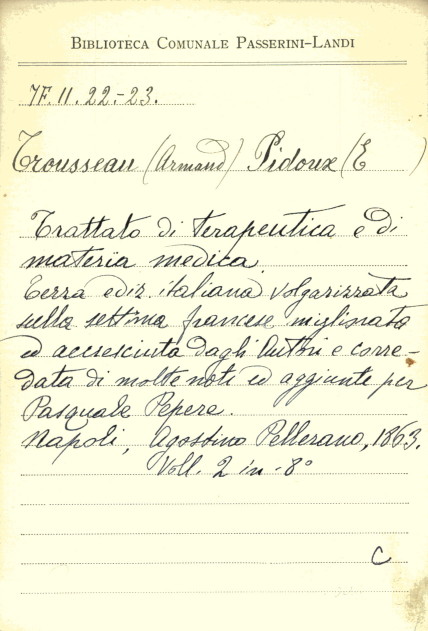 BIBLIOTECA COMUNALE PASSERINI-LANDI
7F.II.22.-23.
Trousseau (Armand) Pidoux (E )
Trattato di terapeutica e di
materia medica.
Terza ediz. italiana volgarizzata
sulla settima francese migliorata
ed accresciuta dagli Autori e corre-
data di molte note ed aggiunte per
Pasquale Pepere.
Napoli, Agostino Pellerano, 1863.
Voll. 2 in-8°
C